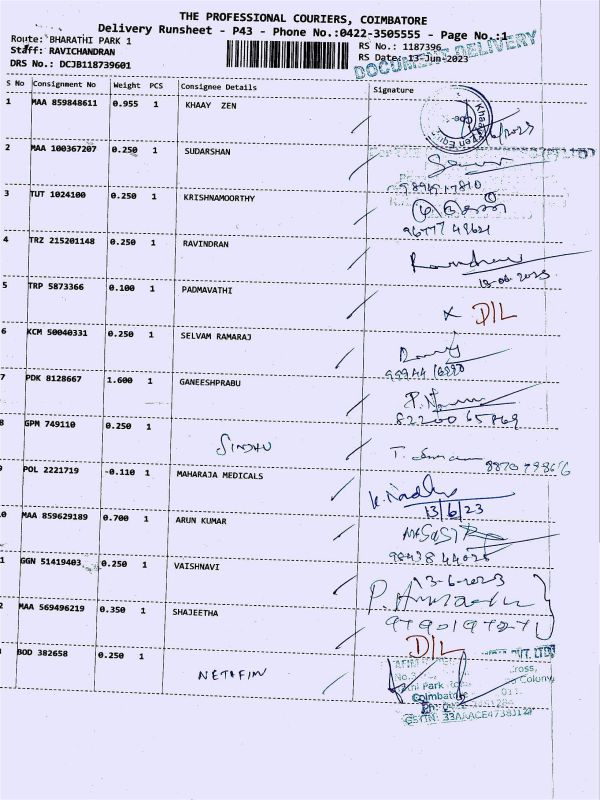 THE PROFESSIONAL COURIERS, COIMBATORE
Delivery Runsheet - P43 - Phone No.:0422-3505555 - Page No.:1
Route: BHARATHI PARK 1
RS No.: 1187396
Staff: RAVICHANDRAN
RS Date: 13-Jun-2023
DRS No.: DCJB118739601
DOCUMENT DELIVERY
S No Consignment No Weight PCS Consignee Details Signature
1 MAA 859848611 0.955 1 KHAAY ZEN
2 MAA 100367207 0.250 1 SUDARSHAN
3 TUT 1024100 0.250 1 KRISHNAMOORTHY
4 TRZ 215201148 0.250 1 RAVINDRAN
5 TRP 5873366 0.100 1 PADMAVATHI
x D/L
6 KCM 50040331 0.250 1 SELVAM RAMARAJ
7 PDK 8128667 1.600 1 GANEESHPRABU
82200 65869
8 GPM 749110 0.250 1
SINDHU
9 POL 2221719 -0.110 1 MAHARAJA MEDICALS
13/6/23
0 MAA 859629189 0.700 1 ARUN KUMAR
98438 44025
1 GGN 51419403 0.250 1 VAISHNAVI
13-6-2023
2 MAA 569496219 0.350 1 SHAJEETHA
D/L
BOD 382658 0.250 1
NETAFIM
PVT. LTD
Cross,
Colony,
Coimbatore
GSTIN: 33AAACE4738J1Z